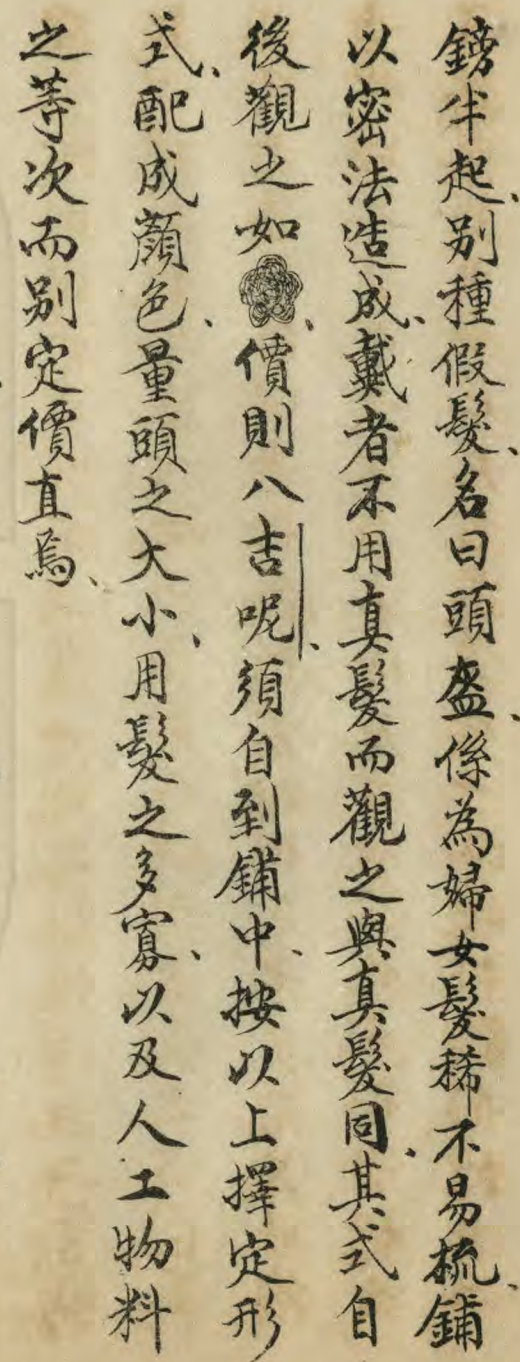 鎊半起、别種假髮、名曰頭盔、係為婦女髮稀不易梳、鋪
以密法造成、戴者不用真髮而觀之與真髮同、其式自
後觀之如、價則八吉呢、須自到鋪中、按以上擇定形
式、配成顏色、量頭之大小、用髮之多寡、以及人工物料
之等次而别定價直焉、